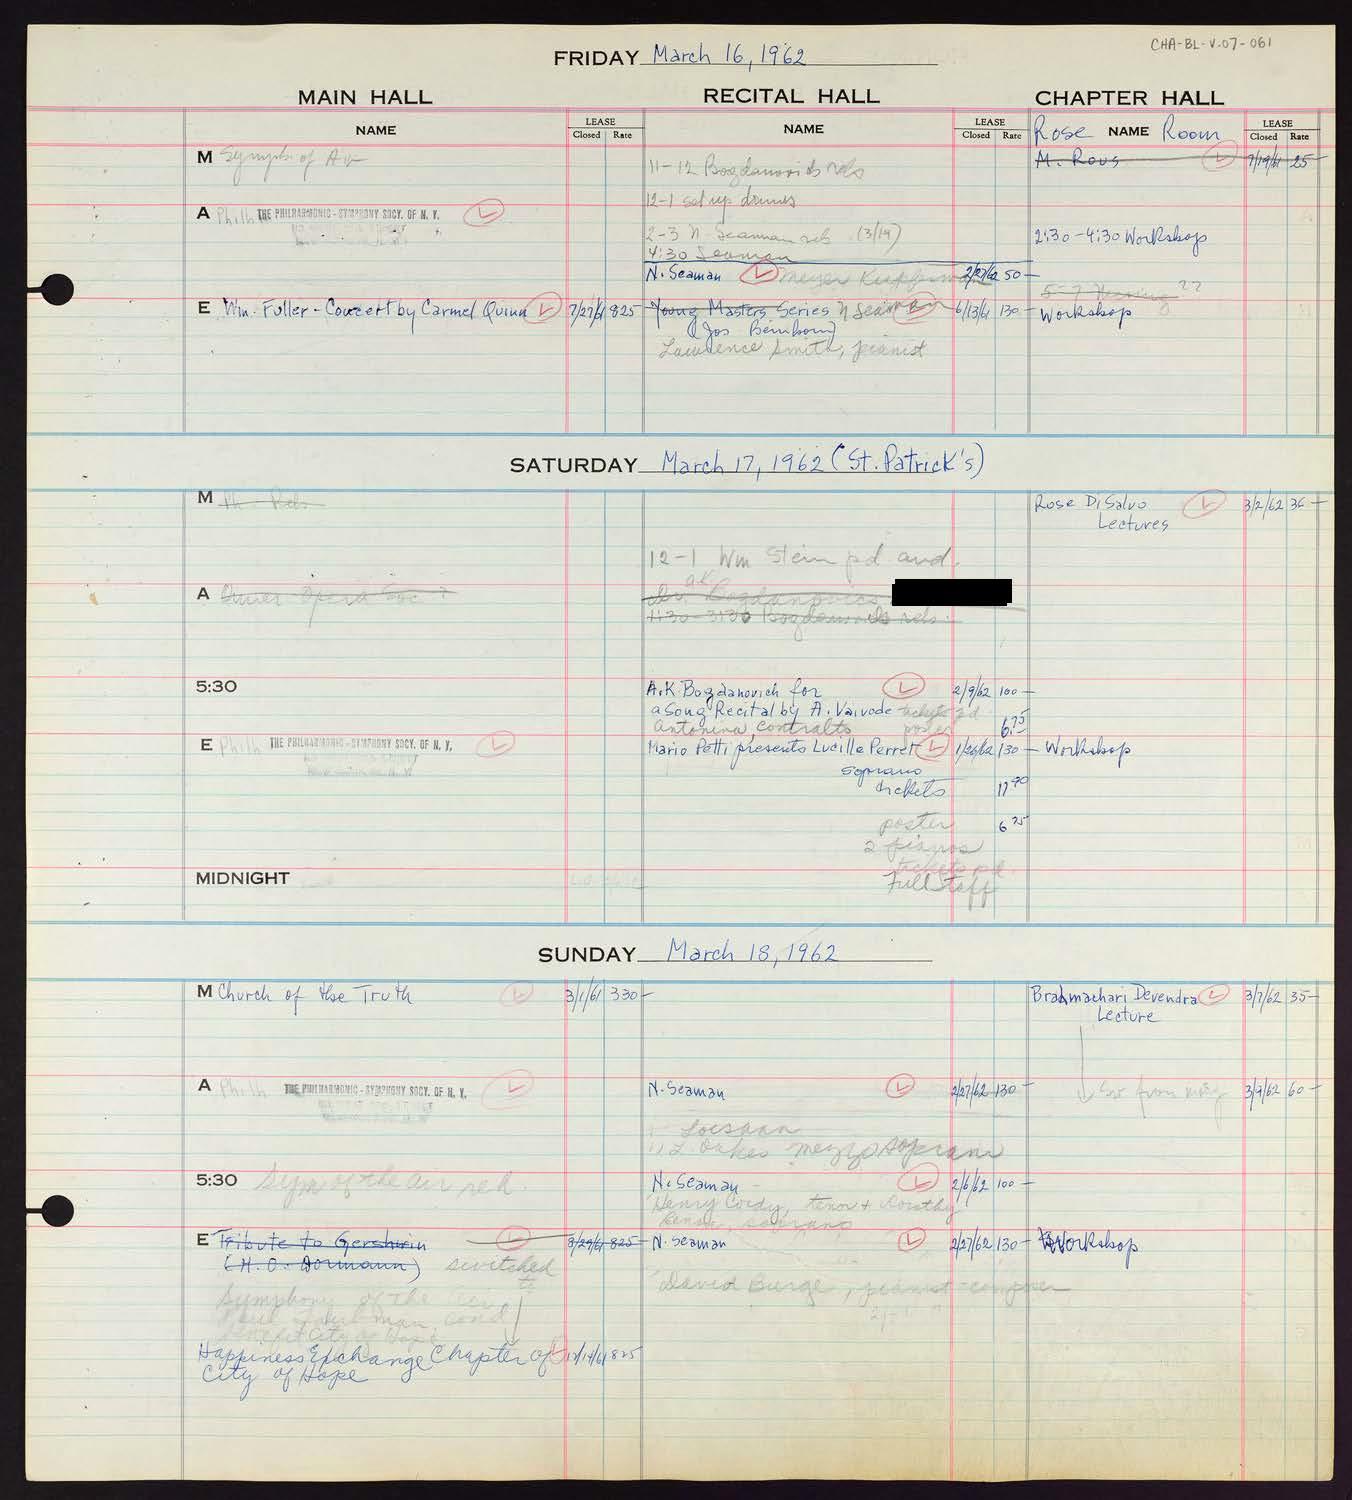 CHA-BL-V.07-061
FRIDAY March 16, 1962
MAIN HALL RECITAL HALL CHAPTER HALL
NAME LEASE Closed Rate NAME LEASE Closed Rate Rose NAME Room LEASE Closed Rate
M Symph of Air
11-12 Bogdanovich reh
M. Rous 7/19/61 25—
12-1 set up drums
A Philh THE PHILHARMONIC-SYMPHONY SOCY. OF N. Y.
2-3 N. Seaman reh (3/19)
2:30-4:30 Workshop
4:30 Seaman
N. Seaman Meyer Kupferman 2/27/62 50—
5-7 Hearing ??
E Wm. Fuller - Concert by Carmel Quinn 7/27/61 825—
Young Masters Series N Seaman 6/13/61 130—
Workshop
(Jos Beinhorn)
Lawrence Smith, pianist
SATURDAY March 17, 1962 (St. Patrick's)
M Ph. Reh
Rose DiSalvo 3/2/62 36—
Lectures
12-1 Wm Stein pd aud.
A Amer Opera Soc ?
A.K. Bogdanovics
1:30-3:30 Bogdanovich reh.
5:30
A.K. Bogdanovich for 2/9/62 100—
a Song Recital by A. Vaivode tickets pd
Antonina, contralto poster 6.75
E Philh THE PHILHARMONIC-SYMPHONY SOCY. OF N. Y.
Mario Petti presents Lucille Perret 1/26/62 130— Workshop
soprano
tickets 17.90
poster 6.75
2 pianos
tickets pd.
MIDNIGHT
Full Staff
SUNDAY March 18, 1962
M Church of the Truth 3/1/61 330—
Brahmachari Devendra 3/7/62 35—
Lecture
A Philh THE PHILHARMONIC-SYMPHONY SOCY. OF N. Y.
N. Seaman 2/27/62 130—
Sw from mng 3/9/62 60—
L. Oakes mezzo soprano
5:30 Sym of the air reh.
N. Seaman 2/6/62 100—
Henry Cordy, tenor + Dorothy
soprano
E Tribute to Gershwin 3/29/61 825—
N. Seaman 2/27/62 130—
Workshop
(H. O. Dormann) switched
to
David Burge, pianist-composer
Symphony of the Air
cond
benefit City of Hope
Happiness Exchange Chapter of 12/14/61 825
City of Hope